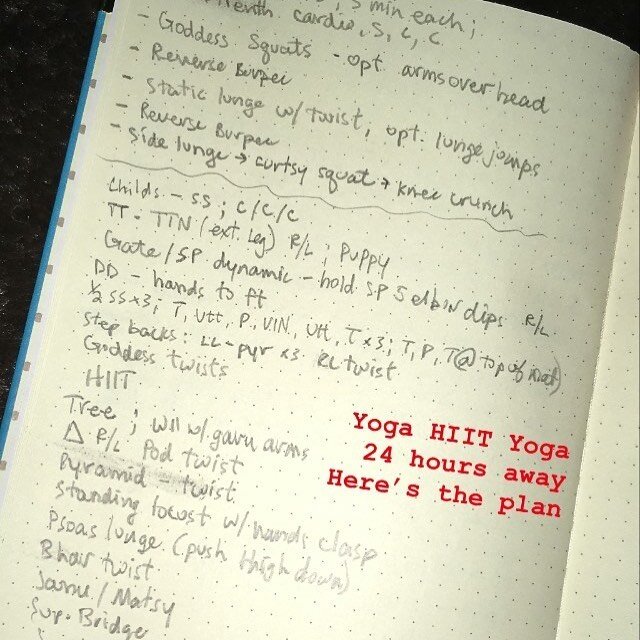 min each;
cardio, S, C, C
- Goddess Squats - opt arms overhead
- Reverse Burpee
- Static lunge w/ twist, opt. lunge jumps
- Reverse Burpee
- Side lunge → curtsy squat → knee crunch
Childs - SS ; C/C/C
TT - TTN (ext. leg) R/L ; Puppy
Gate/SP dynamic - hold SP 5 elbow dips R/L
DD - hands to ft
1/2 SS x 3; T, Utt, P, VIN, Utt, T x 3; T, P, T @ top of mat)
Step backs: LL - pyr x3 RL twist
Goddess twists
HIIT
Tree ; WII w/ garu arms
Δ R/L Pod twist
Pyramid - twist
Standing locust w/ hands clasp
Psoas lunge (push thigh down)
Bhar twist
Janu / Matsy
Sup. Bridge
Yoga HIIT Yoga
24 hours away
Here's the plan